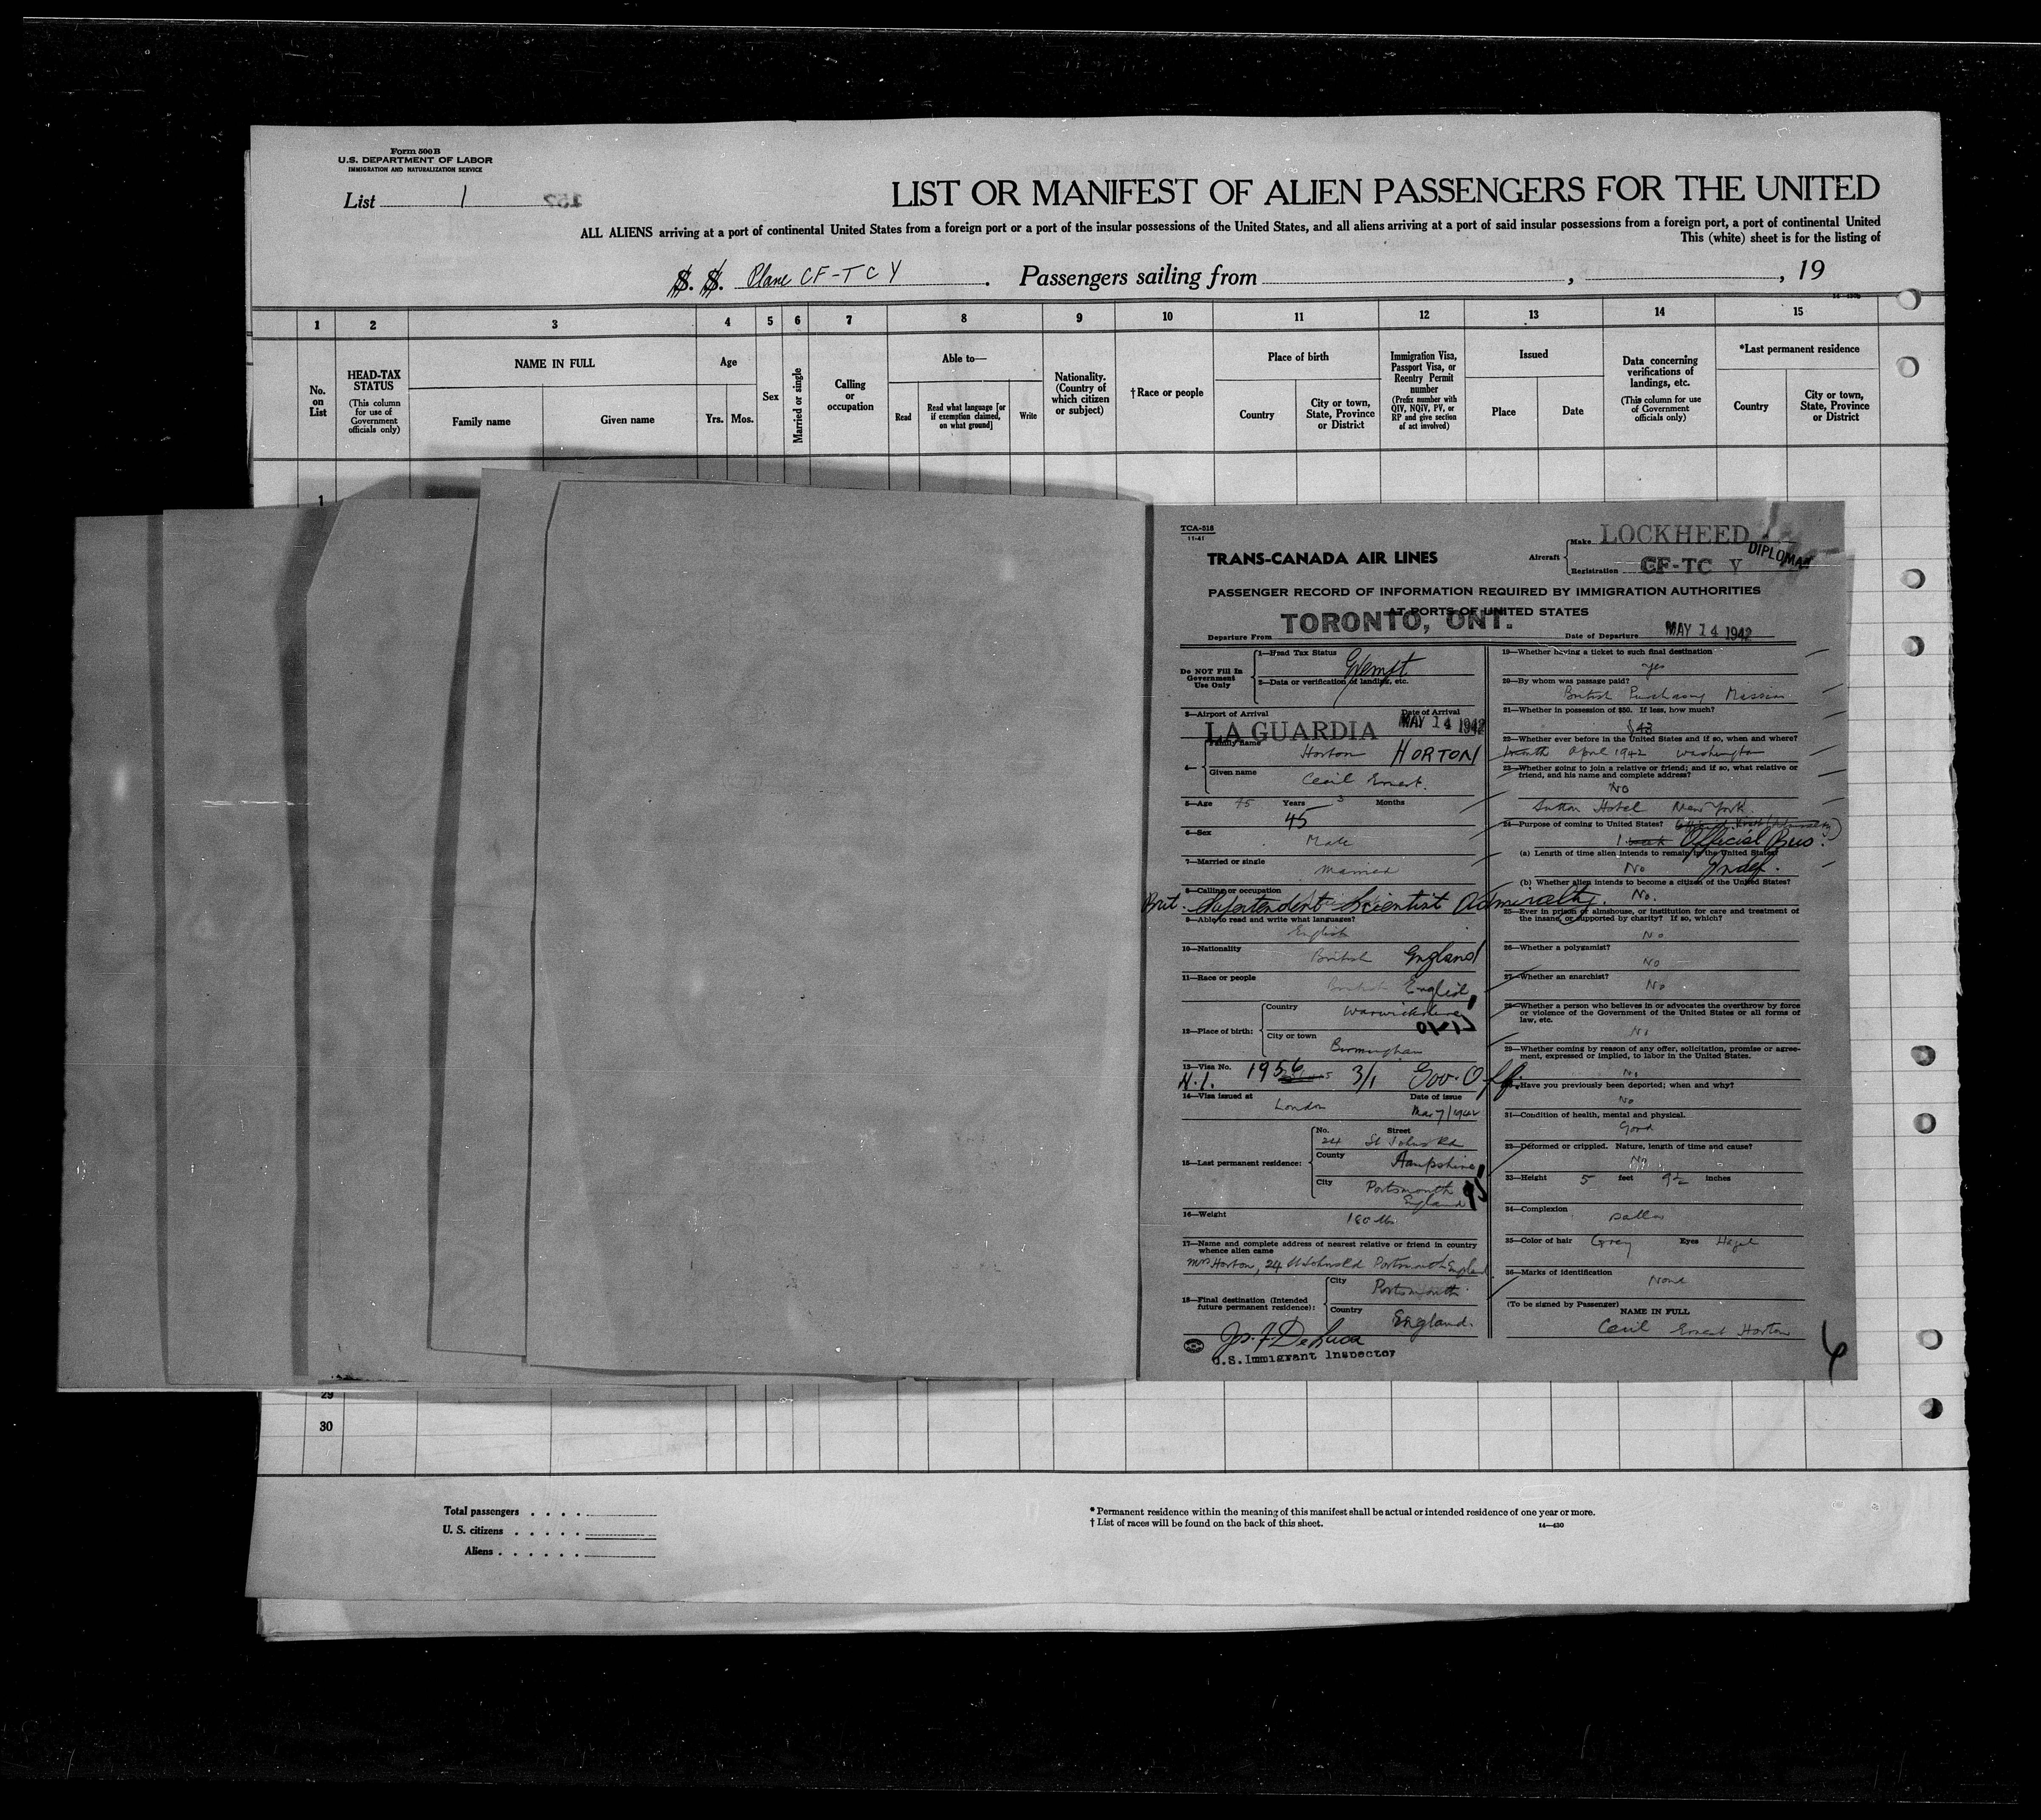 Form 500 B
U.S. DEPARTMENT OF LABOR
IMMIGRATION AND NATURALIZATION SERVICE
List 1
157
LIST OR MANIFEST OF ALIEN PASSENGERS FOR THE UNITED
ALL ALIENS arriving at a port of continental United States from a foreign port or a port of the insular possessions of the United States, and all aliens arriving at a port of said insular possessions from a foreign port, a port of continental United
This (white) sheet is for the listing of
S. S. Plane CF-TCY . Passengers sailing from , , 19
1 2 3 4 5 6 7 8 9 10 11 12 13 14 15
No. on List
HEAD-TAX STATUS
(This column for use of Government officials only)
NAME IN FULL
Family name Given name
Age
Yrs. Mos.
Sex
Married or single
Calling or occupation
Able to—
Read
Read what language [or if exemption claimed, on what ground]
Write
Nationality. (Country of which citizen or subject)
† Race or people
Place of birth
Country
City or town, State, Province or District
Immigration Visa, Passport Visa, or Reentry Permit number
(Prefix number with QIV, NQIV, PV, or RP and give section of act involved)
Issued
Place Date
Data concerning verifications of landings, etc.
(This column for use of Government officials only)
*Last permanent residence
Country
City or town, State, Province or District
1
TCA-518
11-41
TRANS-CANADA AIR LINES
Aircraft
Make LOCKHEED
Registration CF-TC Y
DIPLOMAT
PASSENGER RECORD OF INFORMATION REQUIRED BY IMMIGRATION AUTHORITIES
AT PORTS OF UNITED STATES
Departure From TORONTO, ONT.
Date of Departure MAY 14 1942
Do NOT Fill In Government Use Only
1—Head Tax Status Exempt
2—Data or verification of landing, etc.
3—Airport of Arrival LA GUARDIA
Date of Arrival MAY 14 1942
4—
Family name Horton HORTON
Given name Cecil Ernest.
5—Age 45 Years 3 Months
45
6—Sex Male
7—Married or single Married
8—Calling or occupation
Brit. Superintendent Scientist Admiralty.
9—Able to read and write what languages?
English
10—Nationality British England
11—Race or people British English
12—Place of birth:
Country Warwickshire
City or town Birmingham
13—Visa No. 1956 3/1 Gov. Off.
14—Visa issued at London
Date of issue Mar 7/1942
15—Last permanent residence:
No. 24 Street St Johns Rd
County Hampshire
City Portsmouth England
16—Weight 180 lbs
17—Name and complete address of nearest relative or friend in country whence alien came
Mrs Horton, 24 St Johns Rd Portsmouth England
18—Final destination (Intended future permanent residence):
City Portsmouth
Country England.
Jos. F. DeLuca
U.S. Immigrant Inspector
19—Whether having a ticket to such final destination
yes
20—By whom was passage paid?
British Purchasing Mission
21—Whether in possession of $50. If less, how much?
$43
22—Whether ever before in the United States and if so, when and where?
April 1942 Washington
23—Whether going to join a relative or friend; and if so, what relative or
friend, and his name and complete address?
No
Sutton Hotel New York.
24—Purpose of coming to United States?
1 week Official Bus.
(a) Length of time alien intends to remain in the United States?
No Indef.
(b) Whether alien intends to become a citizen of the United States?
No.
25—Ever in prison or almshouse, or institution for care and treatment of
the insane, or supported by charity? If so, which?
No
26—Whether a polygamist?
No
27—Whether an anarchist?
No
28—Whether a person who believes in or advocates the overthrow by force
or violence of the Government of the United States or all forms of
law, etc.
No
29—Whether coming by reason of any offer, solicitation, promise or agree-
ment, expressed or implied, to labor in the United States.
No
30—Have you previously been deported; when and why?
No
31—Condition of health, mental and physical.
Good
32—Deformed or crippled. Nature, length of time and cause?
No
33—Height 5 feet 9½ inches
34—Complexion Sallow
35—Color of hair Grey Eyes Hazel
36—Marks of identification None
(To be signed by Passenger)
NAME IN FULL
Cecil Ernest Horton
6
29
30
Total passengers
U. S. citizens
Aliens
* Permanent residence within the meaning of this manifest shall be actual or intended residence of one year or more.
† List of races will be found on the back of this sheet.
14—430